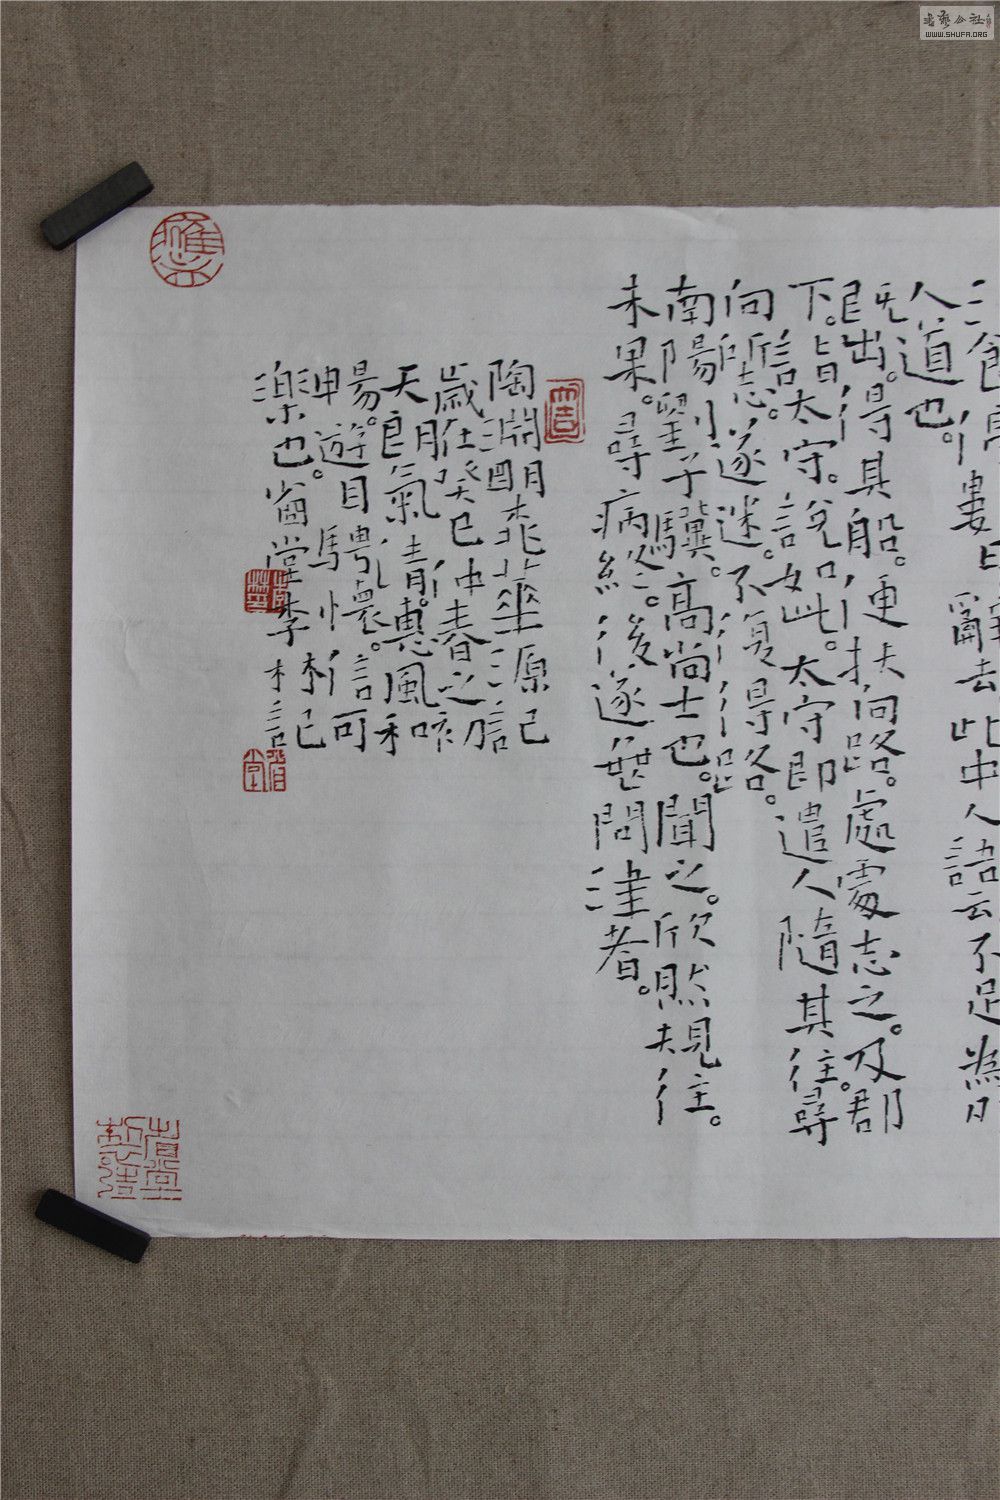 酒食停數日辭去此中人語云不足為外
人道也。
既出。得其船。便扶向路。處處志之。及郡
下。詣太守。說如此。太守即遣人隨其往。尋
向所志。遂迷。不復得路。
南陽劉子驥。高尚士也。聞之。欣然規往。
未果。尋病終。後遂無問津者。
陶淵明桃華源記
歲在癸巳仲春之初
天朗氣清。惠風和
暢。遊目騁懷。信可
樂也。堂李記
書藝公社
WWW.SHUFA.ORG